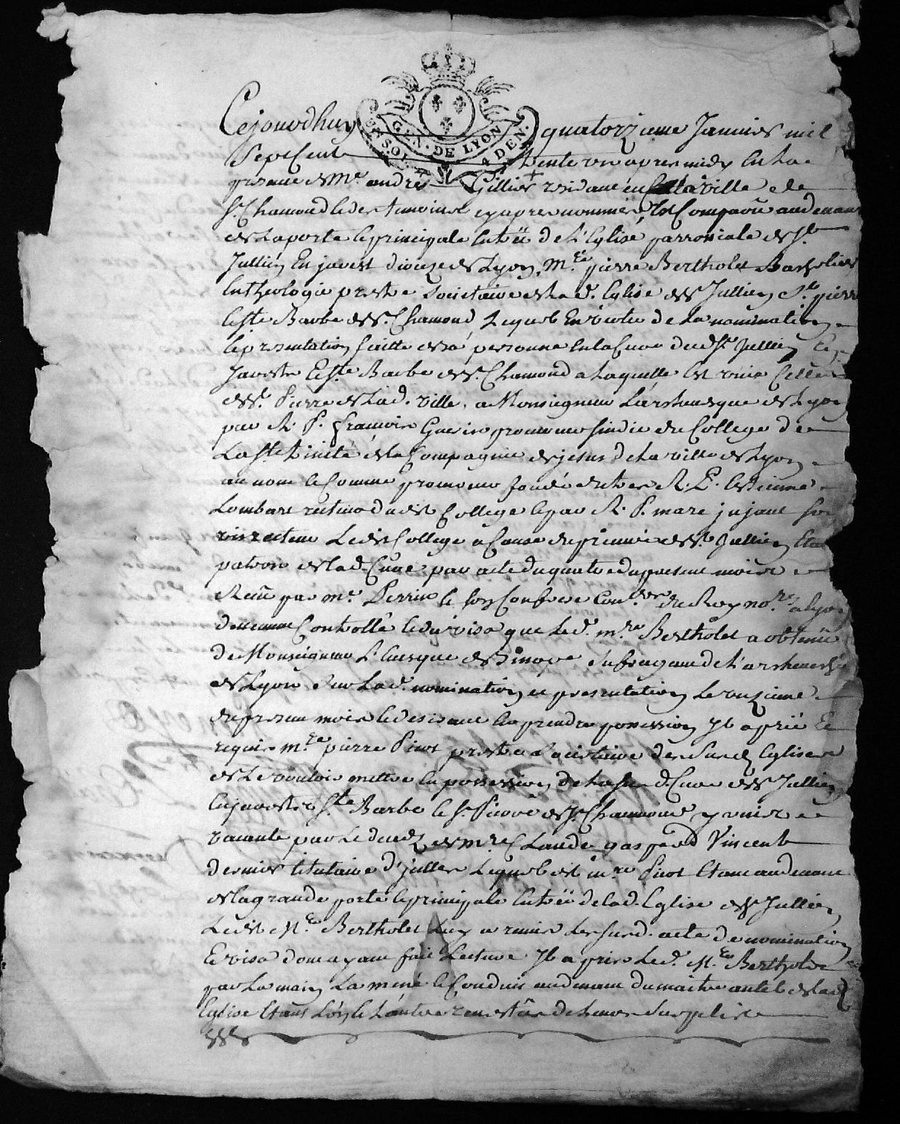 Cejourdhuy quatorzieme Janvier mil
GEN. DE LYON
4 DEN.
Sept Cent trente un apres midy en la
presence de Me andré Gillier residant en la ville de
St. Chamond et des temoins cy apres nommés au devant
de la porte et principale entrée de l'Eglise parroissiale de St
Jullien En jarest dioceze de Lyon, Mre pierre Bertholet Bachelier
en theologie prestre Societaire de lad. Eglise de St Jullien, St. pierre
et Ste Barbe de St. Chamond Lequel En vertu de la nomination
et presentation faitte de sa personne en la Cure dud. St Jullien en
Jarest et Ste Barbe de St Chamond a laquelle est unie Celle
de St. Pierre de lad. ville, a Monseigneur L'archevesque de Lyon
par R. P. françois procureur sindic du College de
la Ste trinité de la Compagnie de jesus de la ville de Lyon
au nom et Comme procureur fondé du R. P. Estienne
Lombard recteur dud. College et par R. P. marc
recteur dud. College a Cause du prieuré de St Jullien
patron de lad. Cure, par acte du quatre du present mois
Receu par me Perrin et son Confrere Conrs. du Roy nores. a Lyon
duement Controllé et du visa que led. mre Bertholet a obtenu
de Monseigneur L'Evesque de Sinope suffragant de L'archevesché
de Lyon sur lad. nomination et presentation le onzieme
du present mois et desirant en prendre possession Il a prié et
requis mre pierre Pinot prestre Societaire desd. Eglises
de le vouloir mettre en possession de lad. Cure de St Jullien
en jarest Ste Barbe et St. Pierre de St Chamond y unie
vacante par le deces de mre Claude gaspard Vincent
dernier titulaire d'Icelle Lequel dit mre Pinot Etant au devant
de la grande porte et principale entrée de lad. Eglise de St Jullien
Ledit Mre Bertholet luy a remis lesd. acte de nomination
et visa dont ayant fait Lecture Il a pris led. Mre Bertholet
par la main la mené et Conduit au devant du maitre autel de lad.
Eglise Etants l'un et l'autre revestus de leurs surplis